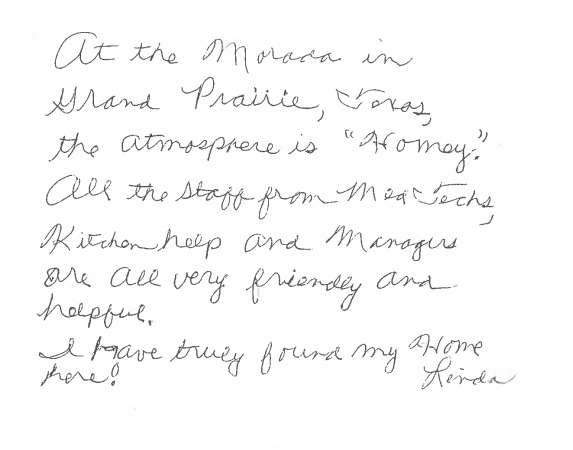 At the Morada in
Grand Prairie, Texas,
the atmosphere is "Homey."
All the staff from Med Techs,
Kitchen help and Managers
are all very friendly and
helpful.
I have truly found my Home
here!
Linda